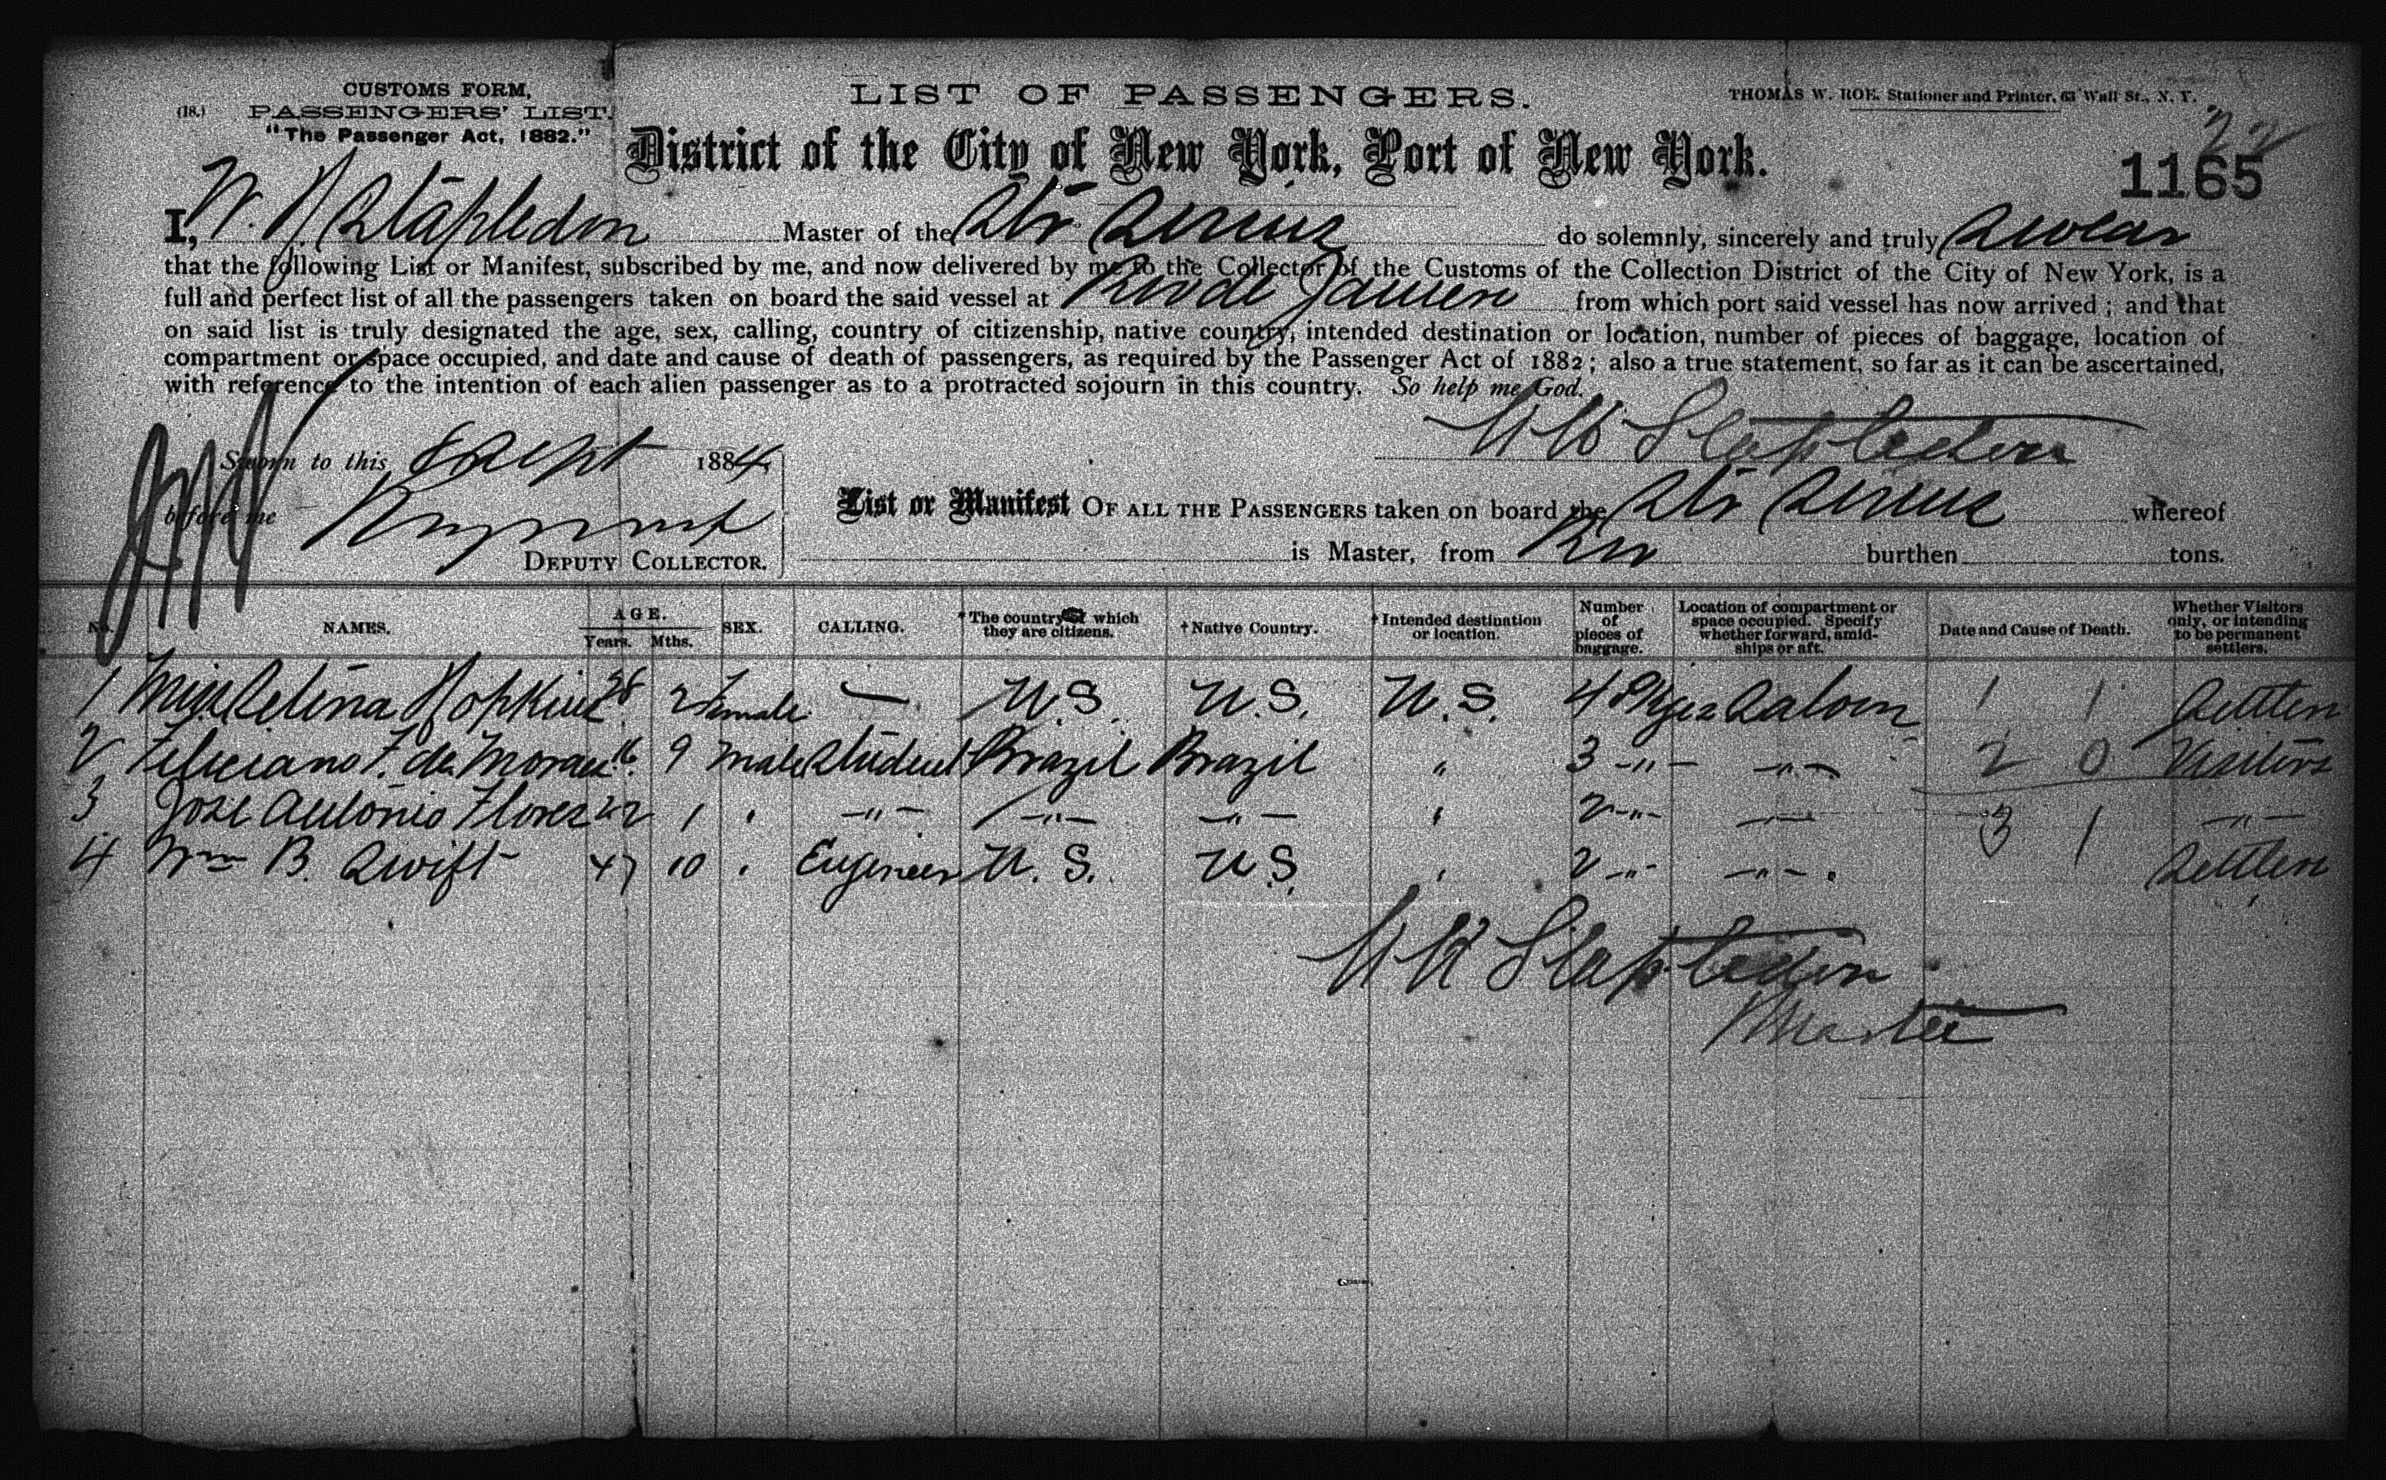 CUSTOMS FORM,
(18.) PASSENGERS' LIST.
"The Passenger Act, 1882."
LIST OF PASSENGERS.
THOMAS W. ROE. Stationer and Printer, 63 Wall St., N. Y.
22
District of the City of New York, Port of New York.
1165
I, W. H. Stapledon Master of the Str Sirius do solemnly, sincerely and truly Swear
that the following List or Manifest, subscribed by me, and now delivered by me to the Collector of the Customs of the Collection District of the City of New York, is a
full and perfect list of all the passengers taken on board the said vessel at Rio de Janiero from which port said vessel has now arrived; and that
on said list is truly designated the age, sex, calling, country of citizenship, native country, intended destination or location, number of pieces of baggage, location of
compartment or space occupied, and date and cause of death of passengers, as required by the Passenger Act of 1882; also a true statement, so far as it can be ascertained,
with reference to the intention of each alien passenger as to a protracted sojourn in this country. So help me God.
W H Stapledon
Sworn to this 8 Sept 1884,
before me
DEPUTY COLLECTOR.
List or Manifest OF ALL THE PASSENGERS taken on board the Str Sirius whereof
is Master, from Rio burthen tons.
No. NAMES. AGE. Years. Mths. SEX. CALLING. * The country of which they are citizens. † Native Country. ‡ Intended destination or location. Number of pieces of baggage. Location of compartment or space occupied. Specify whether forward, amidships or aft. Date and Cause of Death. Whether Visitors only, or intending to be permanent settlers.
1 Miss Celina Hopkins 28 2 Female — U.S. U.S. U.S. 4 Pkges Saloon 1 1 Settlers
2 Feliciano F. de Moraes 16 9 Male Student Brazil Brazil " 3 -"- -"- 2 0 Visitors
3 Jose Antonio Flores 22 1 " -"- -"- -"- " 2 -"- -"- 3 1 -"-
4 Wm B. Swift 47 10 " Engineer U.S. U.S. " 2 -"- -"- Settlers
W H Stapledon
Master